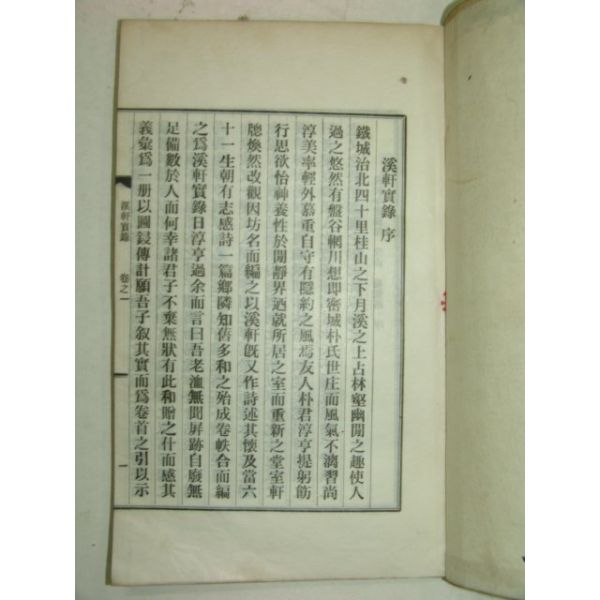 溪軒實錄 序
鐵城治北四十里桂山之下月溪之上占林壑幽閒之趣使人
過之悠然有盤谷輞川想即密城朴氏世庄而風氣不漓習尚
淳美率輕外慕重自守有隱約之風焉友人朴君淳亨提躬飭
行思欲怡神養性於閒靜界迺就所居之室而重新之堂室軒
牕煥然改觀因坊名而編之以溪軒旣又作詩述其懷及當六
十一生朝有志感詩一篇鄉隣知舊多和之殆成卷帙合而編
之爲溪軒實錄日淳亨過余而言曰吾老洫無聞屏跡自廢無
足備數於人而何幸諸君子不棄無狀有此和贈之什而感其
義彙爲一册以圖鋟傳計願吾子叙其實而爲卷首之引以示
溪軒實錄 卷之一 一